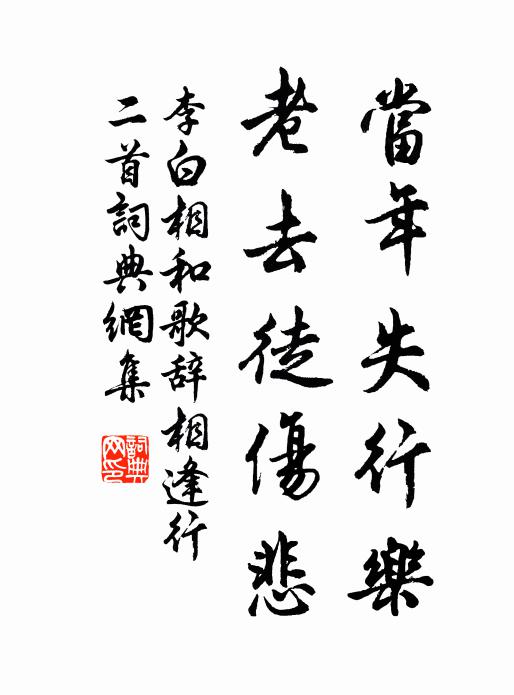 當年失行樂
老去徒傷悲
李白相和歌辞相逢行
二首詞典網集
詞典
网印